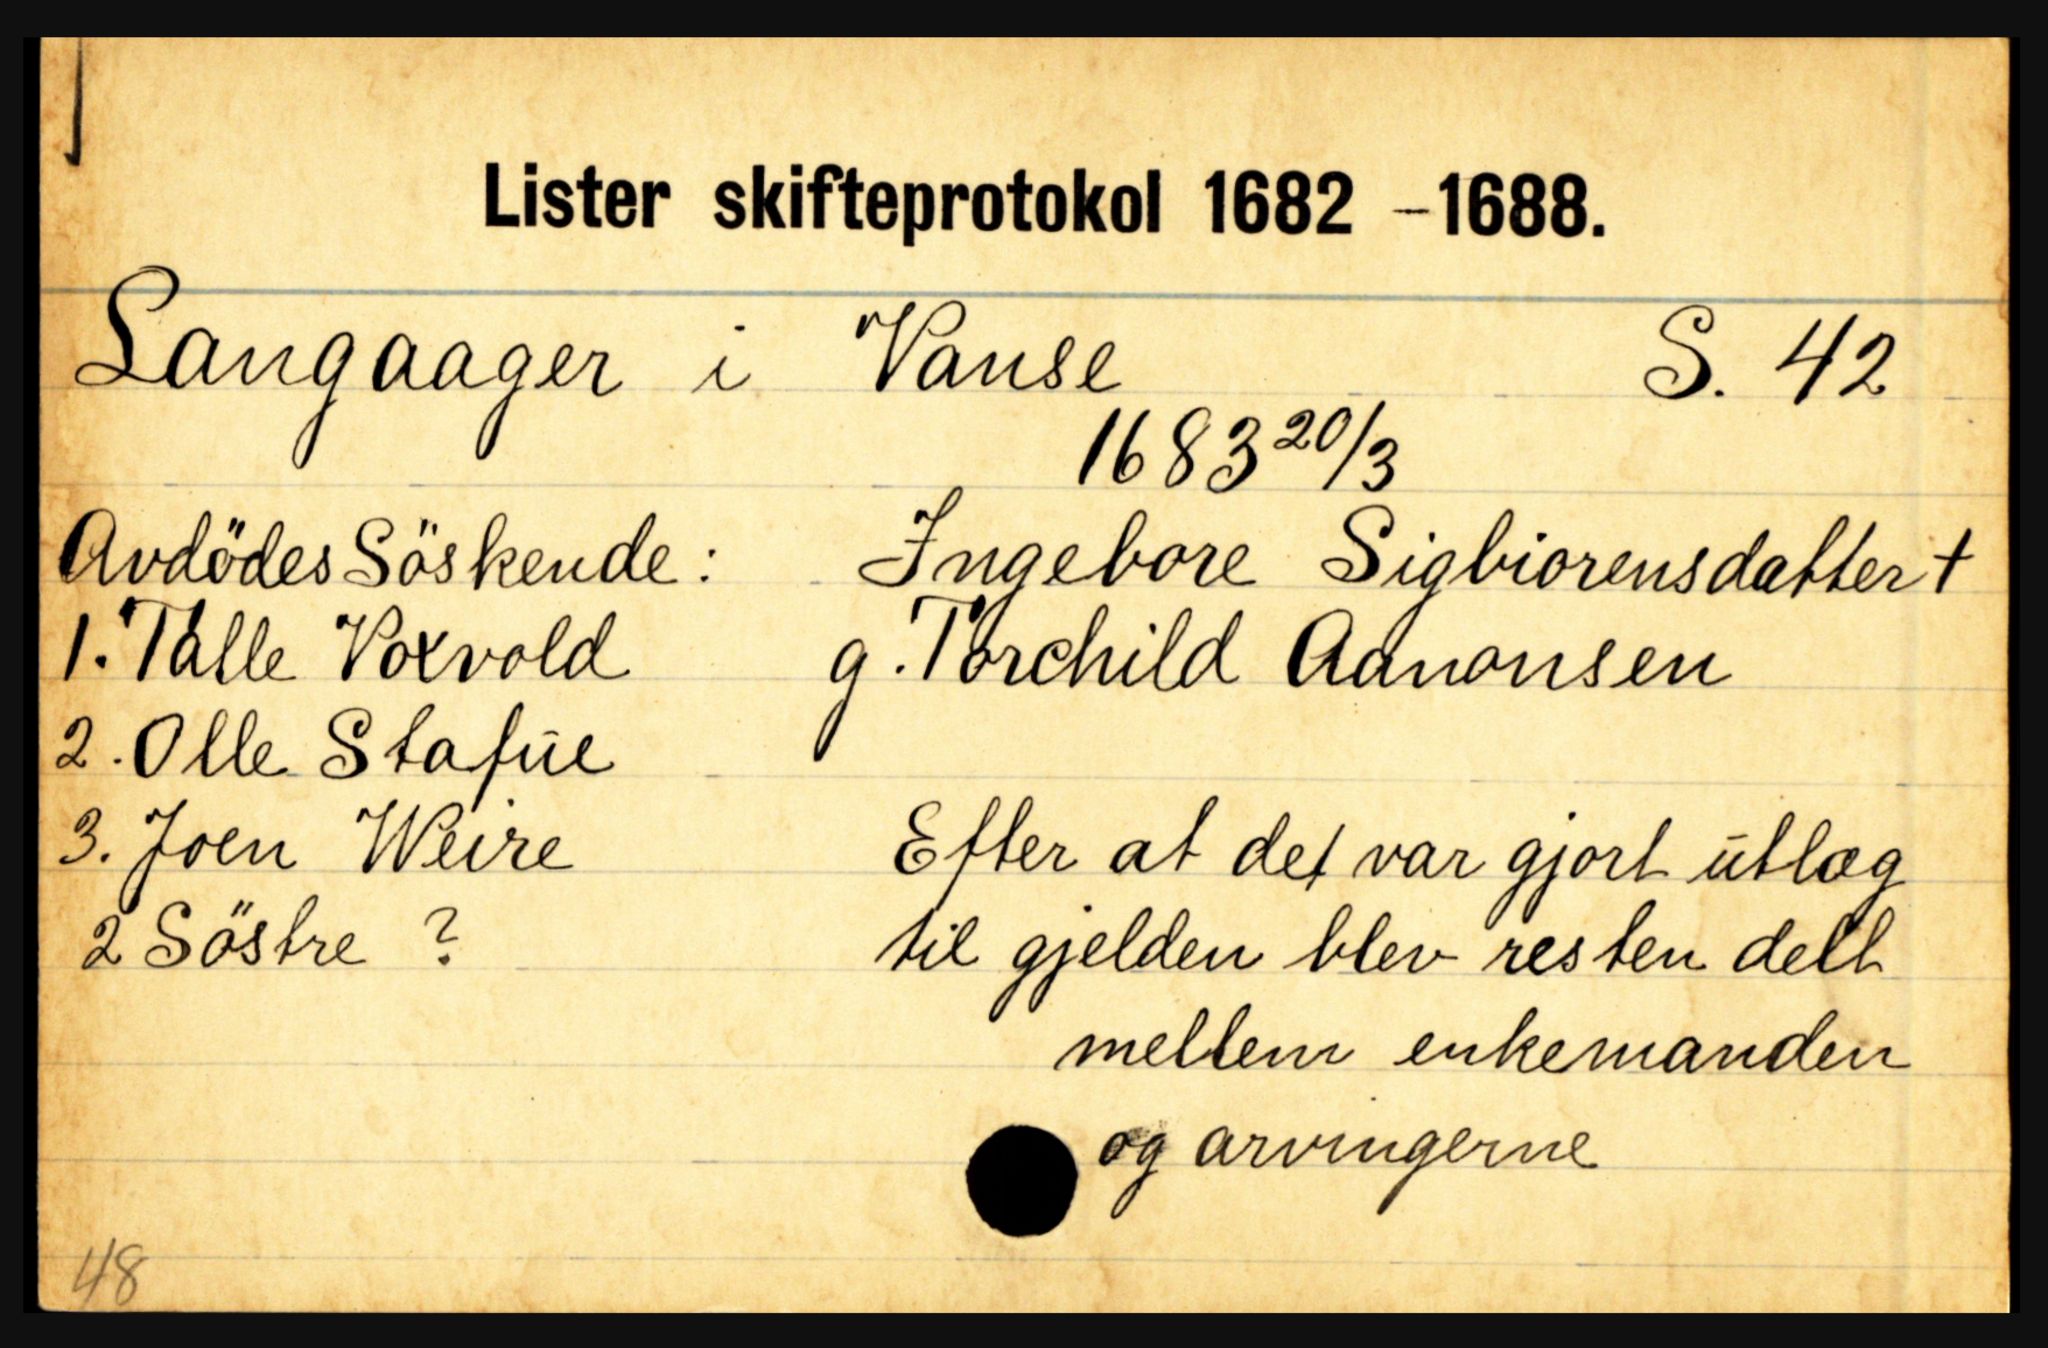 Lister skifteprotokol 1682 - 1688.
Langaager i Vanse S. 42
1683 20/3
Avdödes Söskende: Ingebore Sigbiorensdatter +
1. Talle Voxvold g. Torchild Aanonsen
2. Olle Stafue
3. Joen Weire Efter at det var gjort utlæg
2 Söstre ? til gjelden blev resten delt
mellem enkemanden
og arvingerne
48